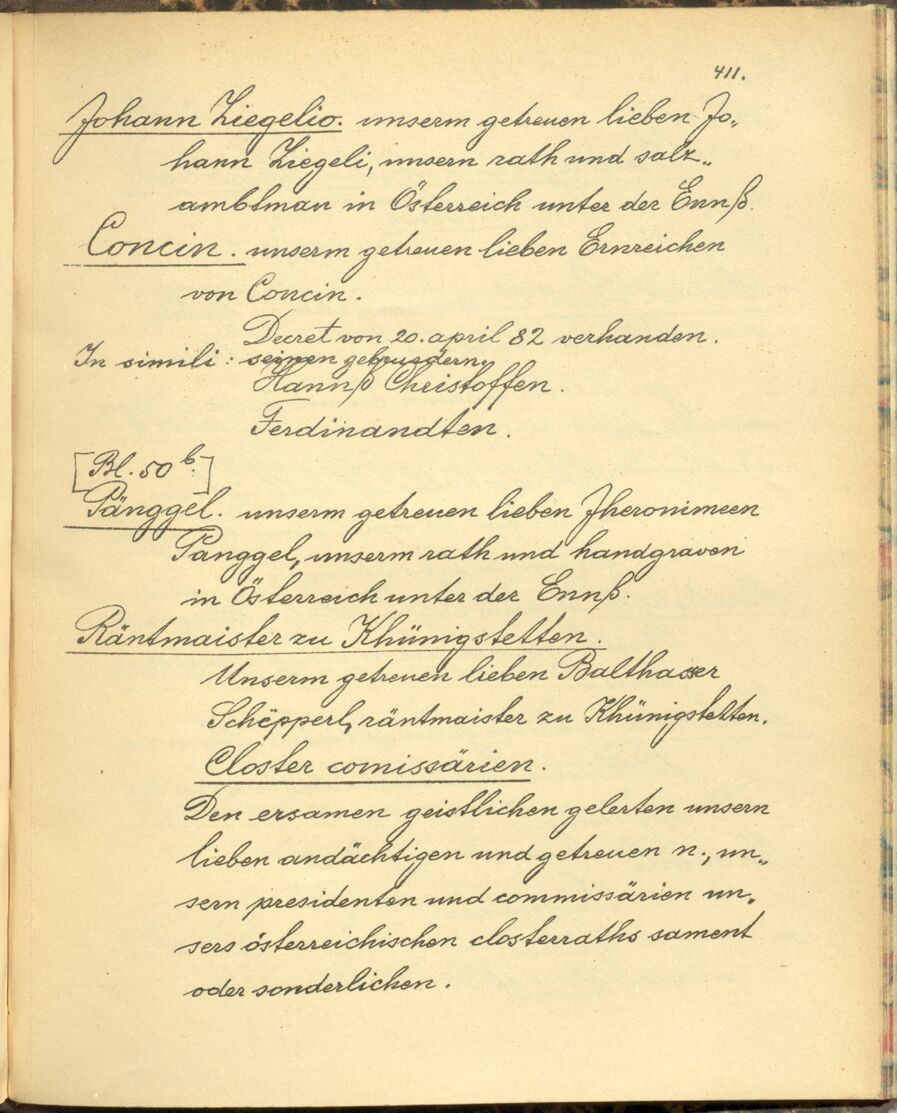 411.
Johann Ziegelio. unserm getreuen lieben Jo„
hann Ziegeli, unsern rath und salz„
ambtman in Österreich unter der Ennß.
Concin. unserm getreuen lieben Ernreichen
von Concin.
Decret von 20. april 82 verhanden.
In simili: seinen gebruedern,
Hannß Christoffen.
Ferdinandten.
[Bl. 50 b.]
Pänggel. unserm getreuen lieben Jheronimeen
Panggel, unserm rath und handgraven
in Österreich unter der Ennß.
Räntmaister zu Khünigstetten.
Unserm getreuen lieben Balthasser
Schëpperl, räntmaister zu Khünigstetten.
Closter comissärien.
Den ersamen geistlichen gelerten unsern
lieben andächtigen und getreuen n., un„
sern presidenten und commissärien un„
sers österreichischen closterraths sament
oder sonderlichen.